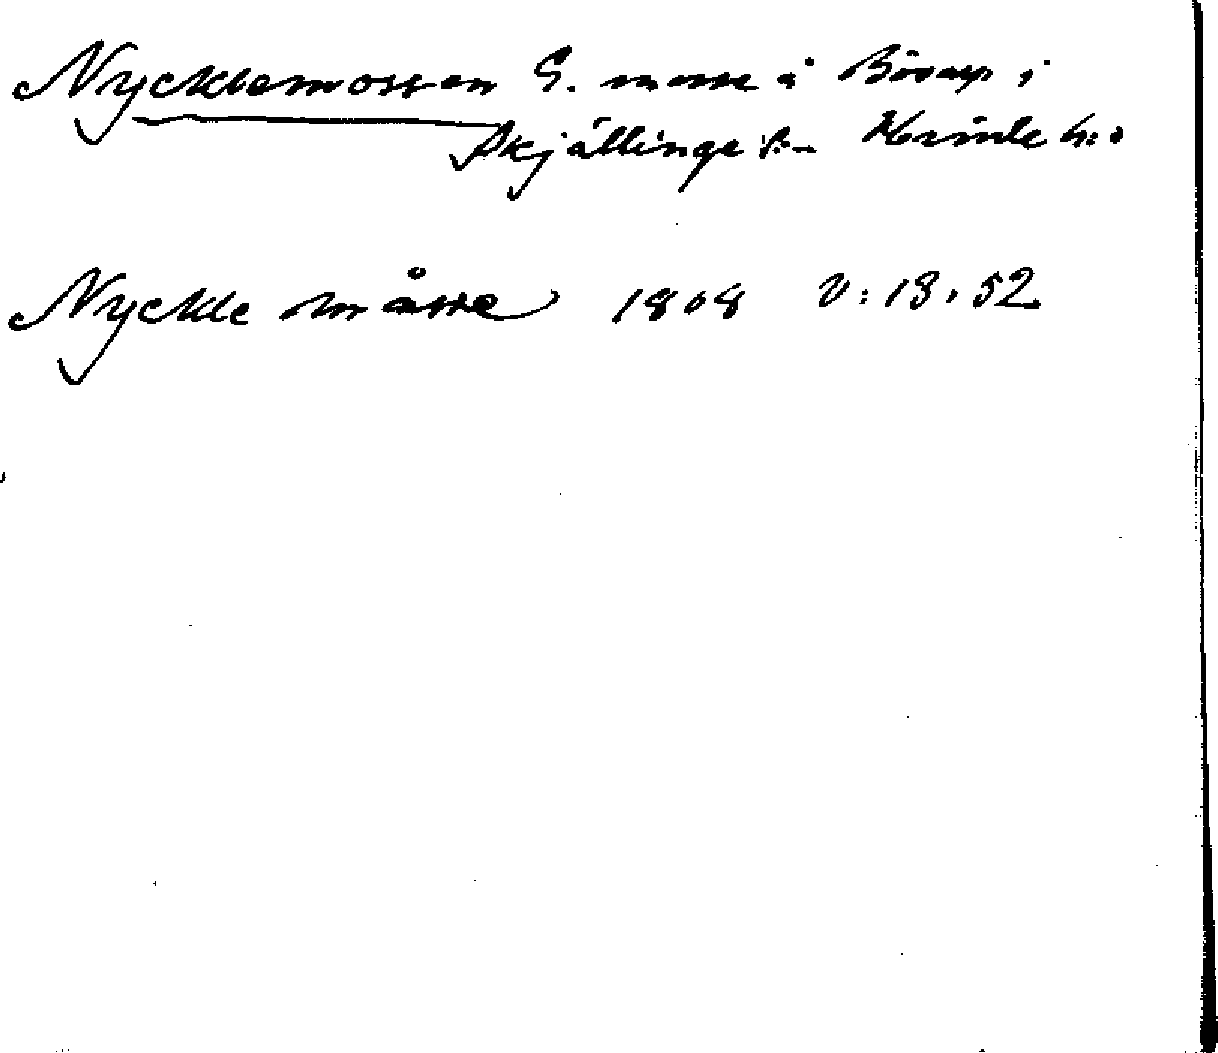 Nycklemossen G. mosse å Börup i
Skjällinge s:n Himle h:d
Nyckle måsse 1808 V:13,52